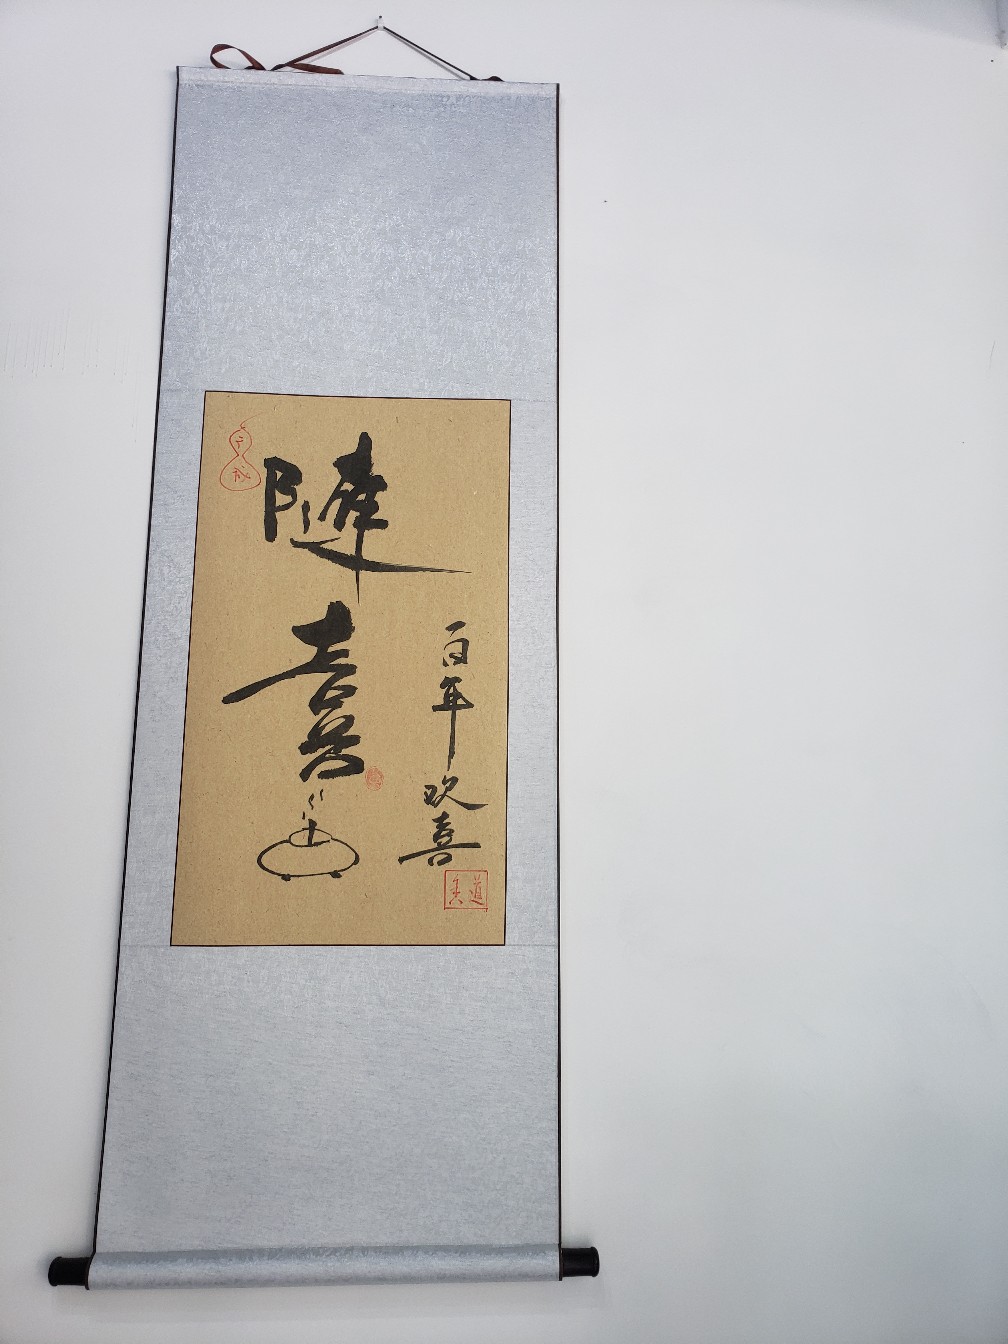 隨喜
百年欢喜